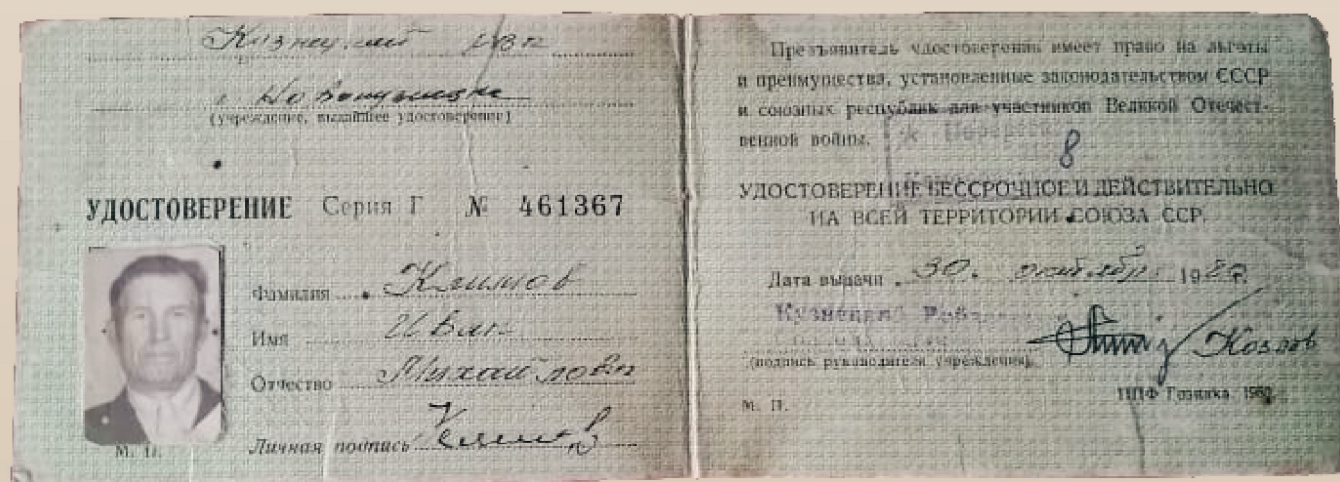 Кузнецкий РВК
г. Новокузнецка
(учреждение, выдавшее удостоверение)
УДОСТОВЕРЕНИЕ Серия Г № 461367
Фамилия Климов
Имя Иван
Отчество Михайлович
Личная подпись
М. П.
Предъявитель удостоверения имеет право на льготы
и преимущества, установленные законодательством СССР
и союзных республик для участников Великой Отечест-
венной войны.
8
УДОСТОВЕРЕНИЕ БЕССРОЧНОЕ И ДЕЙСТВИТЕЛЬНО
НА ВСЕЙ ТЕРРИТОРИИ СОЮЗА ССР.
Дата выдачи 30. октября 198
Кузнецкий
Козлов
(подпись руководителя учреждения)
М. П.
ППФ Гознака.